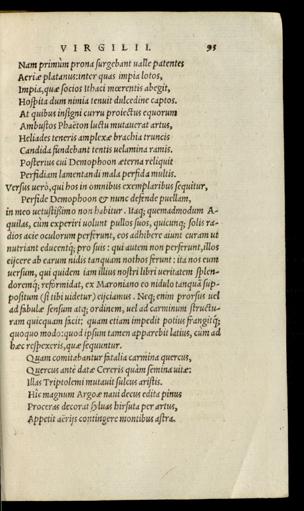 VIRGILII. 95
Nam primùm prona surgebant ualle patentes
Aeriæ platanus: inter quas impia lotos,
Impia, quæ socios Ithaci mœrentis abegit,
Hospita dum nimia tenuit dulcedine captos.
At quibus insigni curru proiectus equorum
Ambustos Phaëton luctu mutauerat artus,
Heliades teneris amplexæ brachia truncis
Candida fundebant tentis uelamina ramis.
Posterius cui Demophoon æterna reliquit
Perfidiam lamentandi mala perfida multis.
Versus uerò, qui hos in omnibus exemplaribus sequitur,
Perfide Demophoon & nunc defende puellam,
in meo uetustissimo non habitur. Itaq; quemadmodum A-
quilas, cùm experiri uolunt pullos suos, quicunq; solis ra-
dios acie oculorum perferunt, eos adhibere aiunt curam ut
nutriant educentq; pro suis: qui autem non perferunt, illos
eijcere ab earum nidis tanquam nothos ferunt: ita nos eum
uersum, qui quidem iam illius nostri libri ueritatem splen-
doremq; reformidat, ex Maroniano eo nidulo tanquã sup-
positum (si tibi uidetur) eijciamus. Neq; enim prorsus uel
ad fabulæ sensum atq; ordinem, uel ad carminum structu-
ram quicquam facit: quam etiam impedit potius frangitq;
quoquo modo: quod ipsum tamen apparebit latius, cùm ad
hæc respexeris, quæ sequuntur.
Quam comitabantur fatalia carmina quercus,
Quercus antè datæ Cereris quàm semina uitæ:
Illas Triptolemi mutauit sulcus aristis.
Hic magnum Argoæ naui decus edita pinus
Proceras decorat syluas hirsuta per artus,
Appetit aërijs contingere montibus astra.